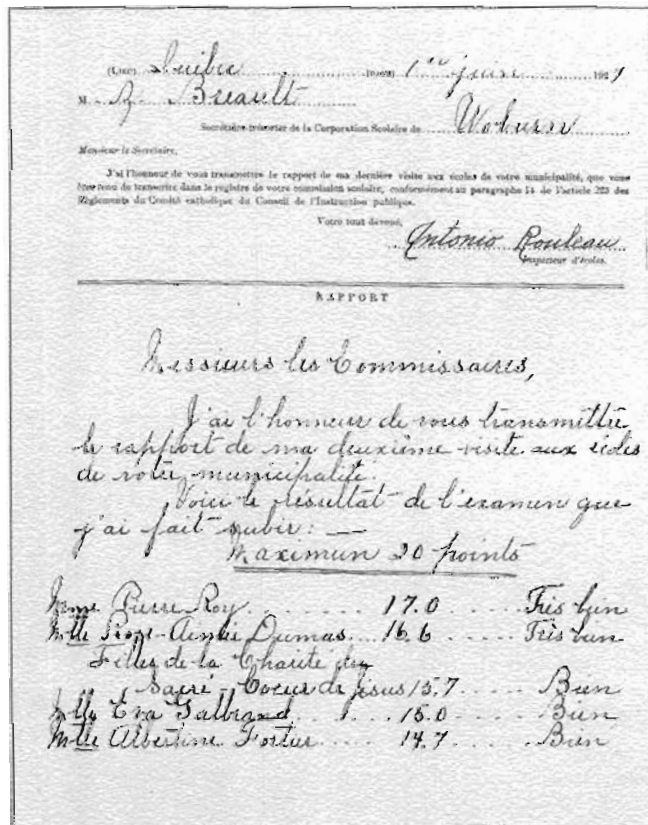 (Lieu) Québec (Date) 1er juin 1927
M. Z. Breault
Secrétaire-trésorier de la Corporation Scolaire de Woburn
Monsieur le Secrétaire,
J'ai l'honneur de vous transmettre le rapport de ma dernière visite aux écoles de votre municipalité, que vous
êtes tenu de transcrire dans le registre de votre commission scolaire, conformément au paragraphe 14 de l'article 223 des
Règlements du Comité catholique du Conseil de l'Instruction publique.
Votre tout dévoué,
Antonio Rouleau
Inspecteur d'écoles.
RAPPORT
Messieurs les Commissaires,
J'ai l'honneur de vous transmettre
le rapport de ma deuxième visite aux écoles
de votre municipalité.
Voici le résultat de l'examen que
j'ai fait subir: —
Maximun 20 points
Mme Pierre Roy 17.0 Très bien
Mlle Rose-Aimée Dumas 16.6 Très bien
Filles de la Charité du
Sacré-Coeur de Jésus 15.7 Bien
Mlle Eva 15.0 Bien
Mlle Albertine Fortier 14.7 Bien